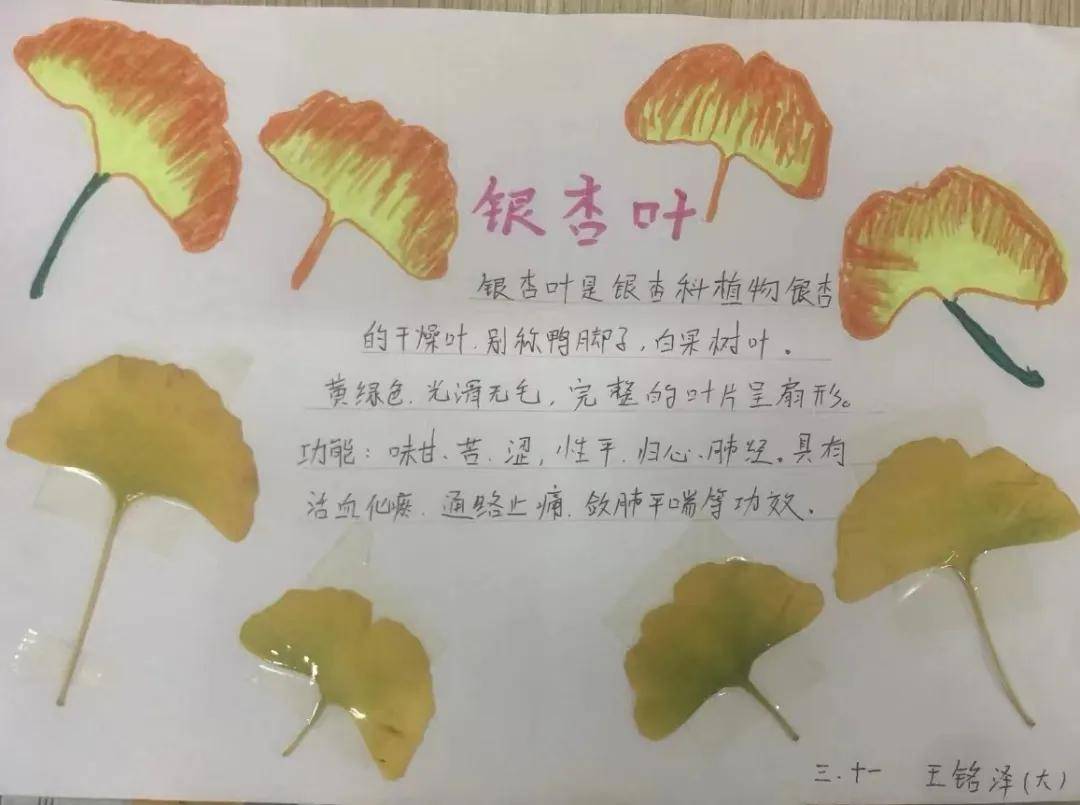 银杏叶
银杏叶是银杏科植物银杏
的干燥叶.别称鸭脚子,白果树叶。
黄绿色.光滑无毛,完整的叶片呈扇形。
功能:味甘、苦、涩,性平.归心、肺经。具有
活血化瘀.通络止痛.敛肺平喘等功效.
三.十一 王铭泽(大)